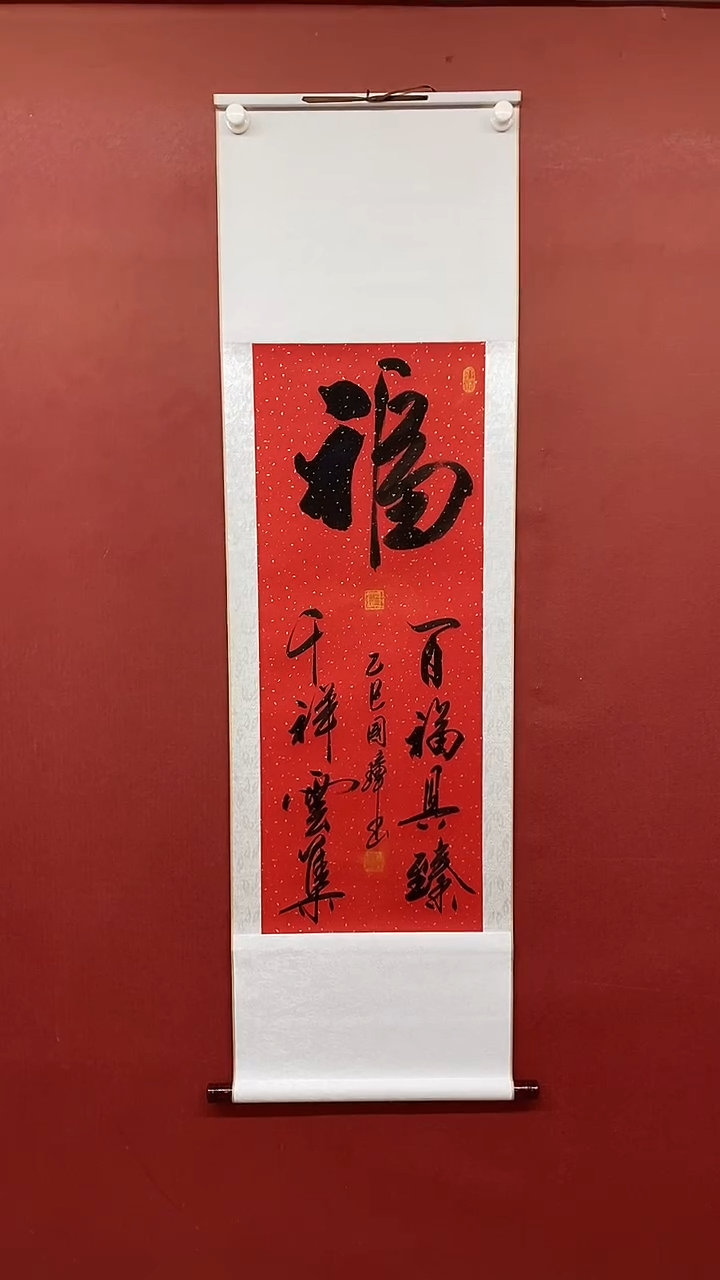 福
百福具臻
千祥雲集
乙巳國璋書